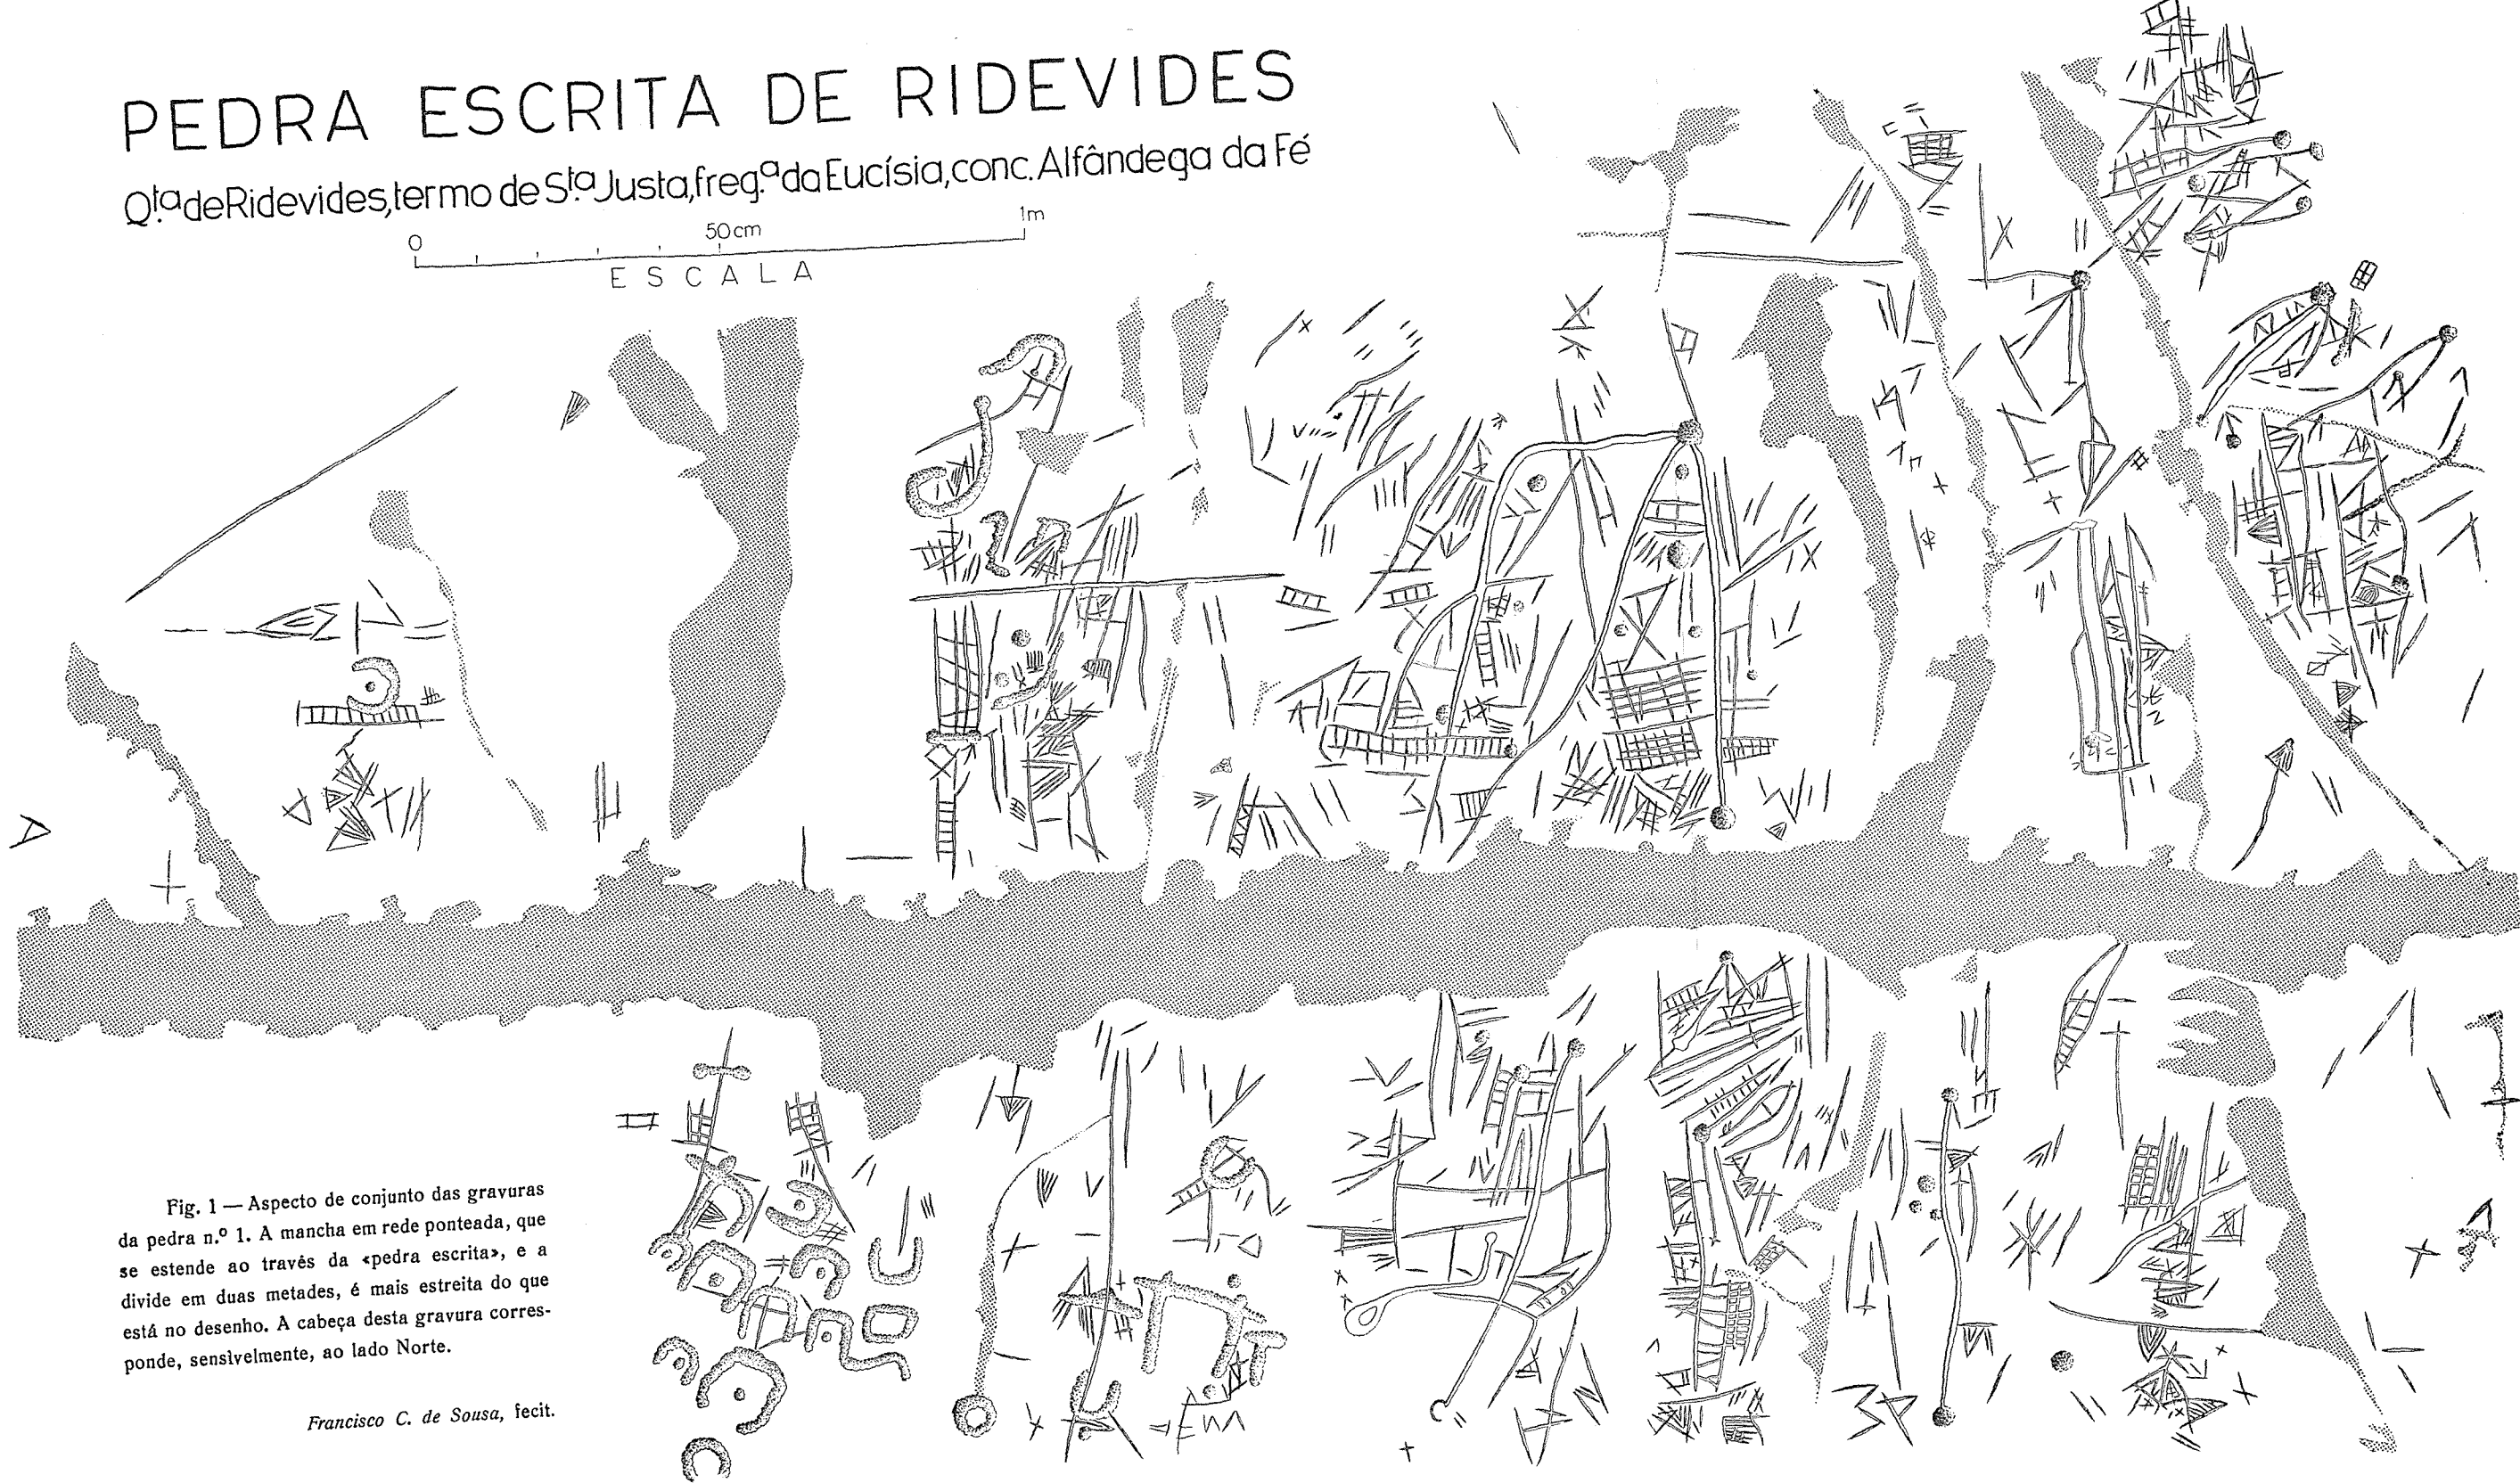 PEDRA ESCRITA DE RIDEVIDES
Q.ta de Ridevides, termo de S.ta Justa, freg.a da Eucísia, conc. Alfândega da Fé
0 50cm 1m
ESCALA
Fig. 1 — Aspecto de conjunto das gravuras
da pedra n.º 1. A mancha em rede ponteada, que
se estende ao través da «pedra escrita», e a
divide em duas metades, é mais estreita do que
está no desenho. A cabeça desta gravura corres-
ponde, sensivelmente, ao lado Norte.
Francisco C. de Sousa, fecit.